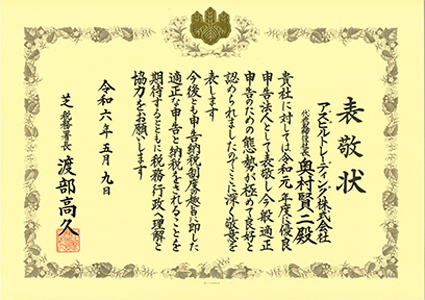 表敬状
アスミルトレーディング株式会社
代表取締役社長 奥村賢二殿
貴社に対しては令和元年度に優良
申告法人として表敬し今般適正
申告のための態勢が極めて良好と
認められましたのでここに深く敬意を
表します
今後とも申告納税制度の趣旨に即した
適正な申告と納税をされることを
期待するとともに税務行政へ理解と
協力をお願いします
令和六年五月九日
芝税務署長 渡部高久